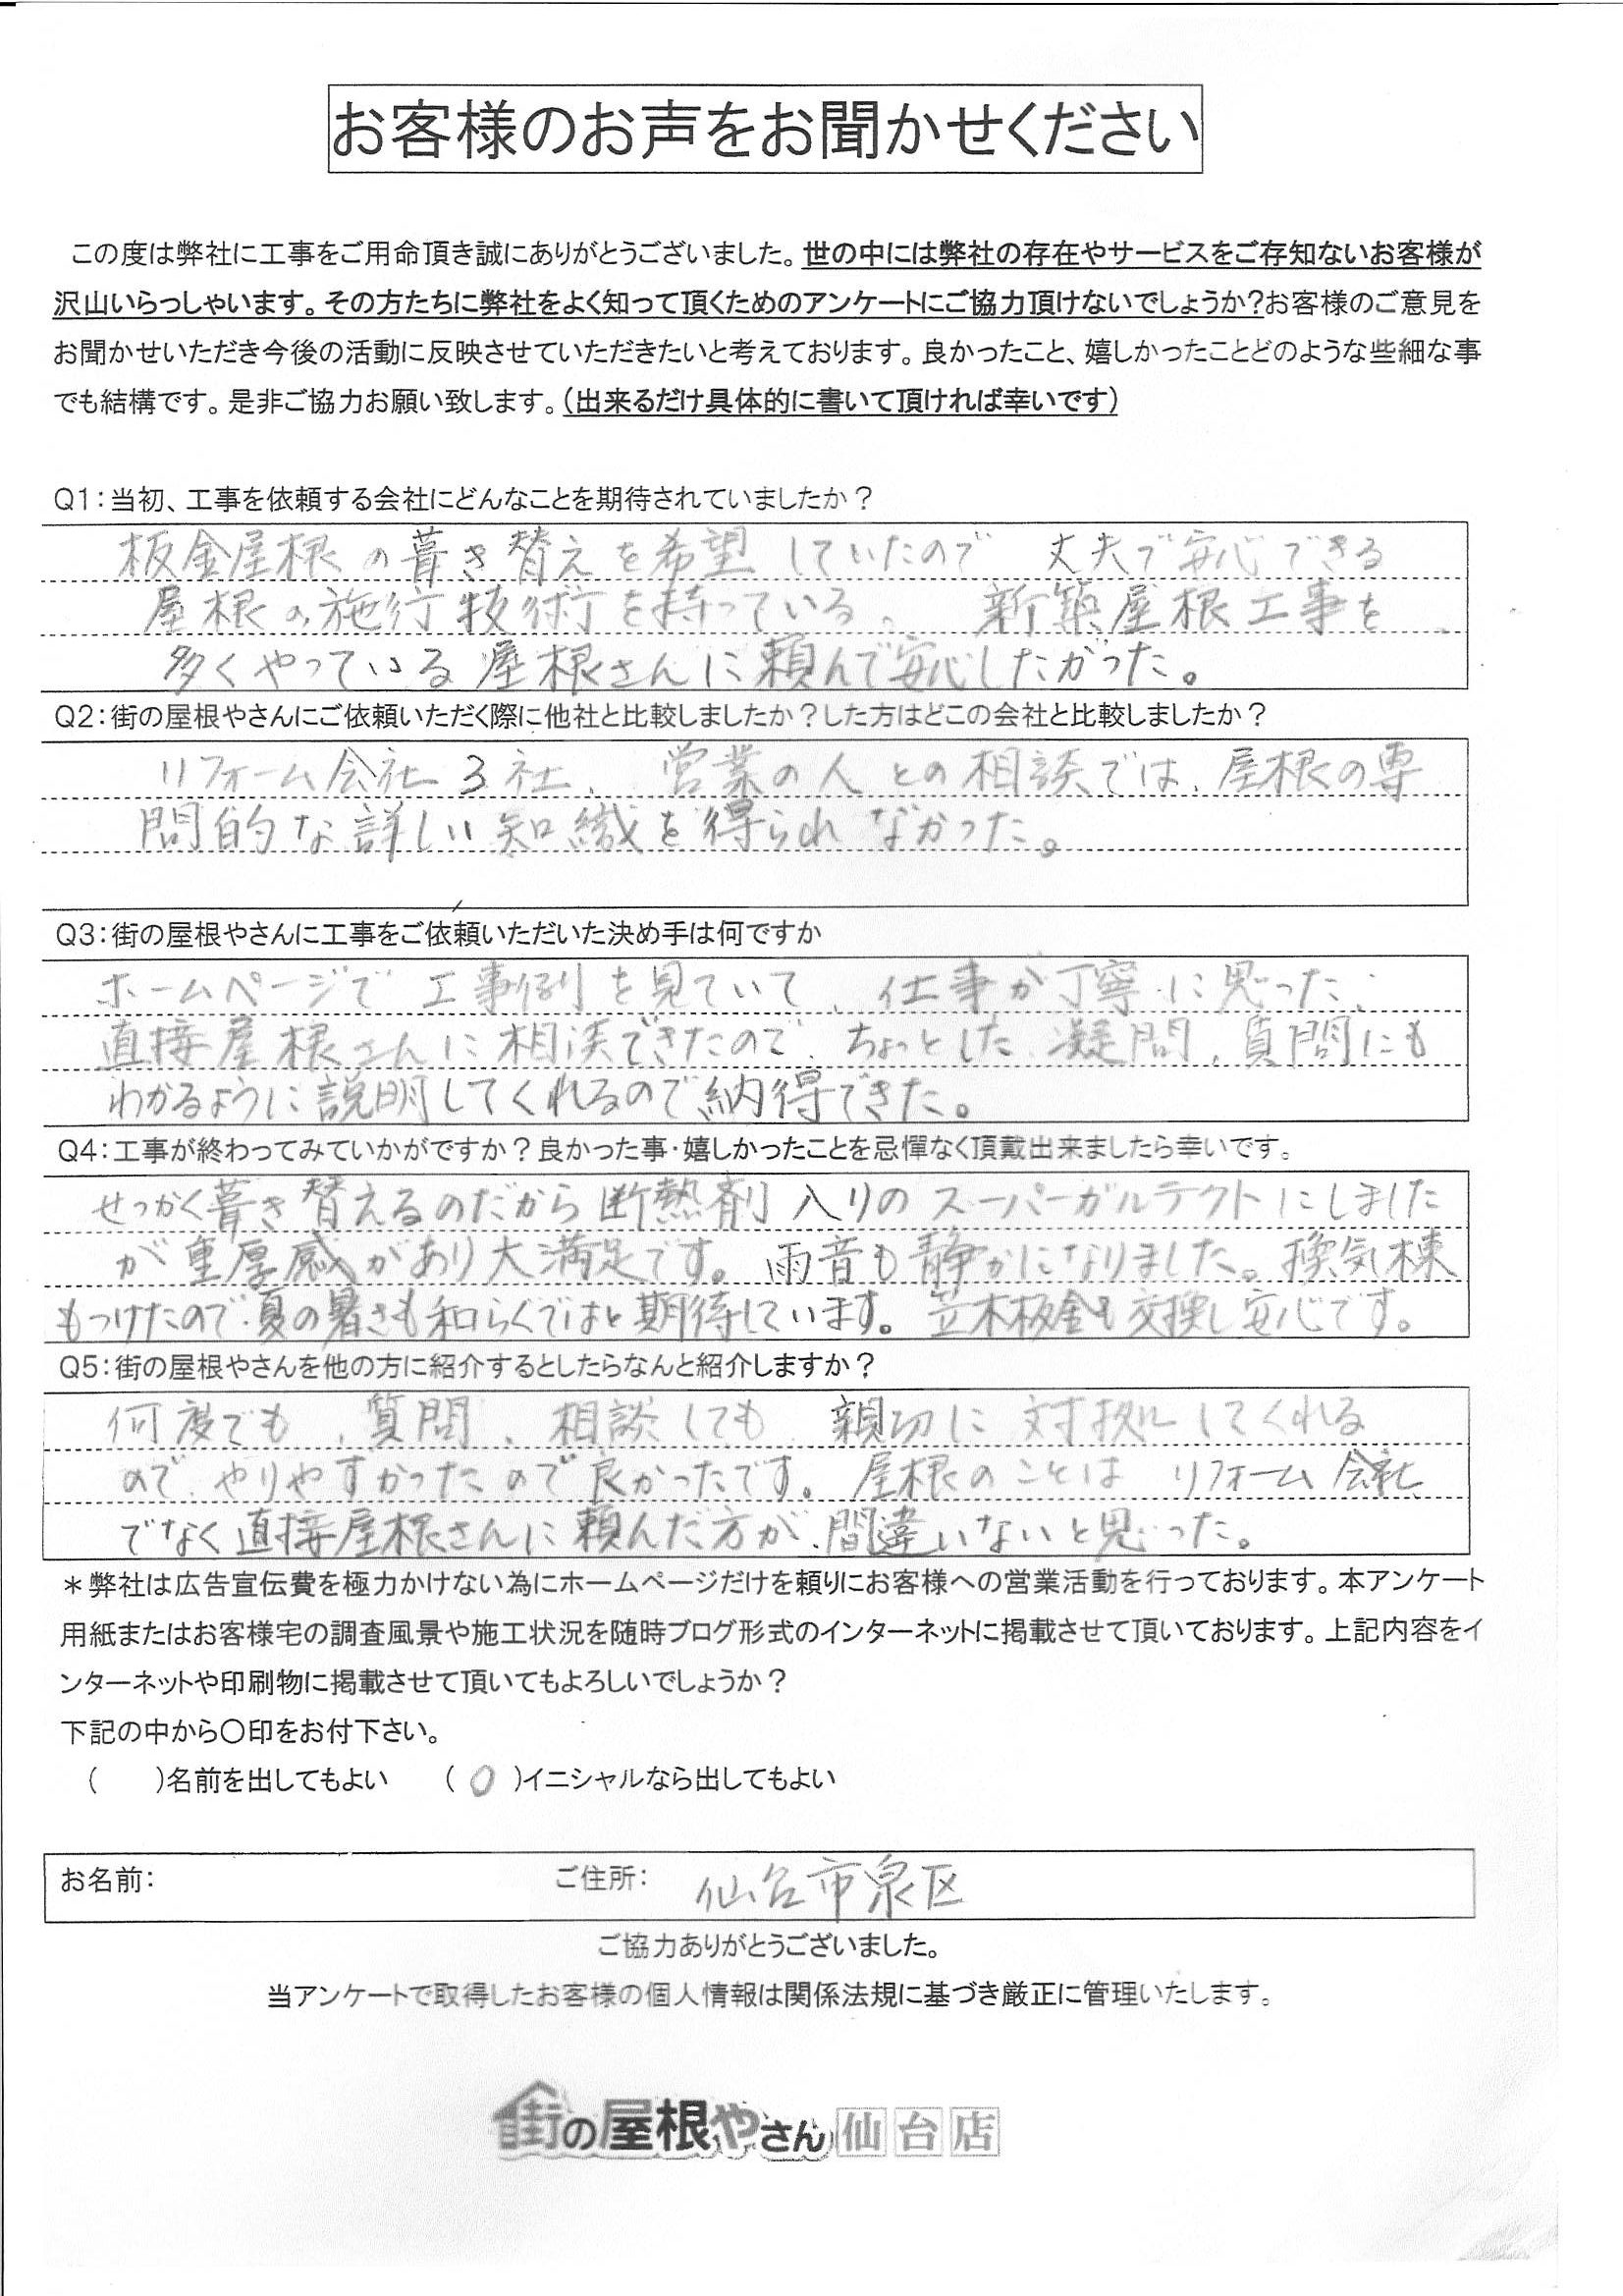 お客様のお声をお聞かせください
この度は弊社に工事をご用命頂き誠にありがとうございました。世の中には弊社の存在やサービスをご存知ないお客様が
沢山いらっしゃいます。その方たちに弊社をよく知って頂くためのアンケートにご協力頂けないでしょうか?お客様のご意見を
お聞かせいただき今後の活動に反映させていただきたいと考えております。良かったこと、嬉しかったことどのような些細な事
でも結構です。是非ご協力お願い致します。(出来るだけ具体的に書いて頂ければ幸いです)
Q1:当初、工事を依頼する会社にどんなことを期待されていましたか?
板金屋根の葺き替えを希望していたので 丈夫で安心できる
屋根の施行技術を持っている。 新築屋根工事を
多くやっている屋根さんに頼んで安心したかった。
Q2:街の屋根やさんにご依頼いただく際に他社と比較しましたか?した方はどこの会社と比較しましたか?
リフォーム会社3社、営業の人との相談では、屋根の専
問的な詳しい知織を得られなかった。
Q3:街の屋根やさんに工事をご依頼いただいた決め手は何ですか
ホームページで工事例を見ていて、仕事が丁寧に思った、
直接屋根さんに相談できたので、ちょっとした凝問、質問にも
わかるように説明してくれるので納得できた。
Q4:工事が終わってみていかがですか?良かった事・嬉しかったことを忌憚なく頂戴出来ましたら幸いです。
せっかく葺き替えるのだから断熱剤入りのスーパーガルテクトにしました
が重厚感があり大満足です。雨音も静かになりました。換気棟
もつけたので、夏の暑さも和らぐではと期待しています。笠木板金も交換し安心です。
Q5:街の屋根やさんを他の方に紹介するとしたらなんと紹介しますか?
何度でも、質問、相談しても 親切に対拠してくれる
ので、やりやすかったので良かったです。屋根のことは リフォーム会社、
でなく直接屋根さんに頼んだ方が、間違いないと思った。
*弊社は広告宣伝費を極力かけない為にホームページだけを頼りにお客様への営業活動を行っております。本アンケート
用紙またはお客様宅の調査風景や施工状況を随時ブログ形式のインターネットに掲載させて頂いております。上記内容をイ
ンターネットや印刷物に掲載させて頂いてもよろしいでしょうか?
下記の中から〇印をお付下さい。
( )名前を出してもよい (〇)イニシャルなら出してもよい
お名前: ご住所: 仙台市泉区
ご協力ありがとうございました。
当アンケートで取得したお客様の個人情報は関係法規に基づき厳正に管理いたします。
街の屋根やさん仙台店